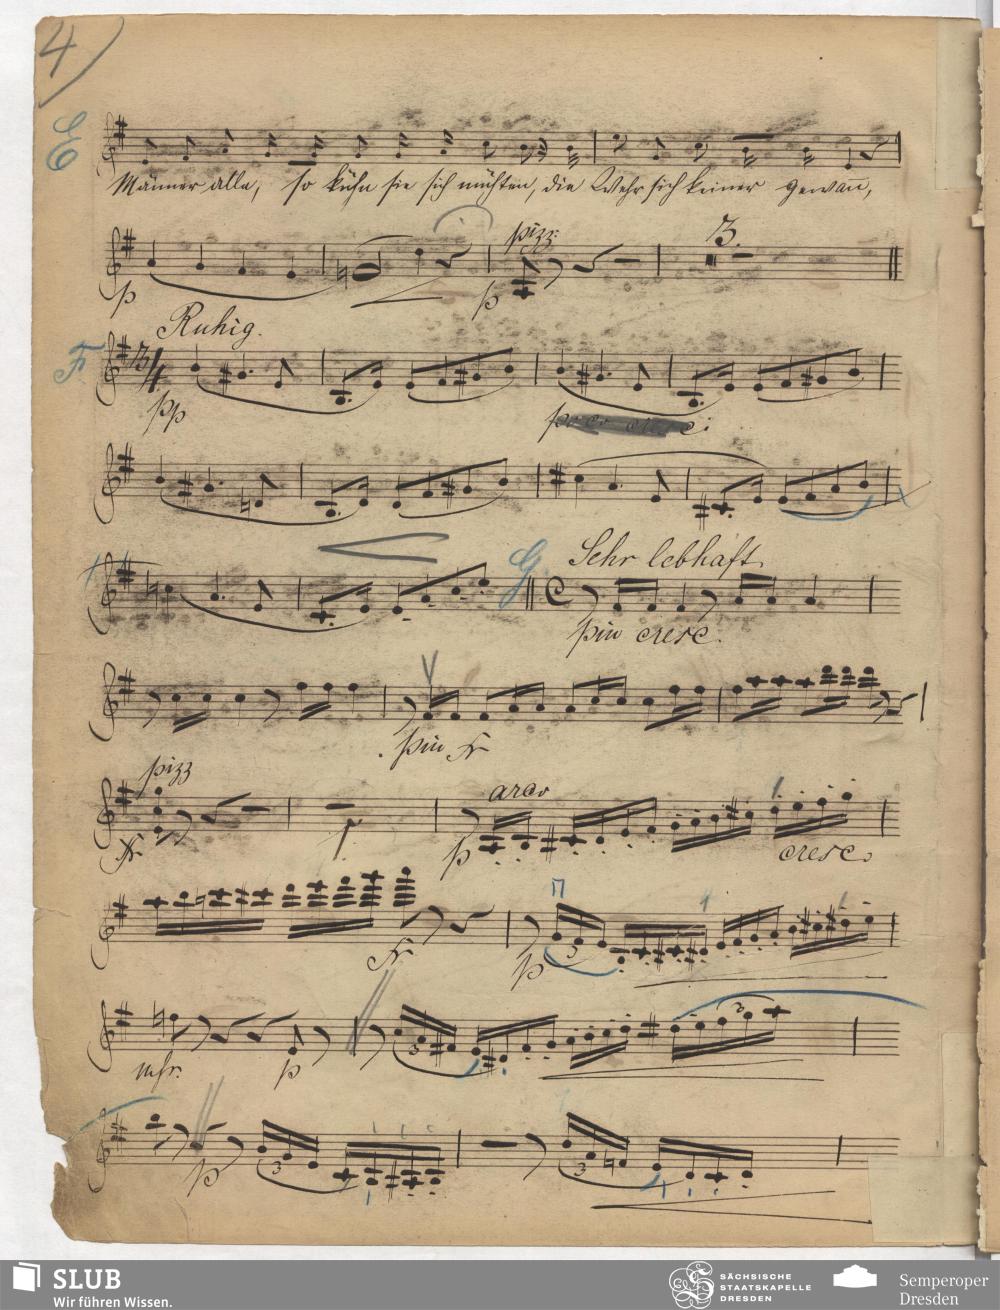 4
E
Männer alle, so kühn sie sich mühten, die Wehr sich keiner gewañ,
pizz:
3.
p
p
Ruhig.
F.
3/4
pp
poco cresc:
G.
Sehr lebhaft
C
più cresc.
più fr
pizz
fr
1.
arco
p
cresc.
fr
p
3
mfr.
p
3
3
p
3
3
SLUB
Wir führen Wissen.
SÄCHSISCHE
STAATSKAPELLE
DRESDEN
Semperoper
Dresden